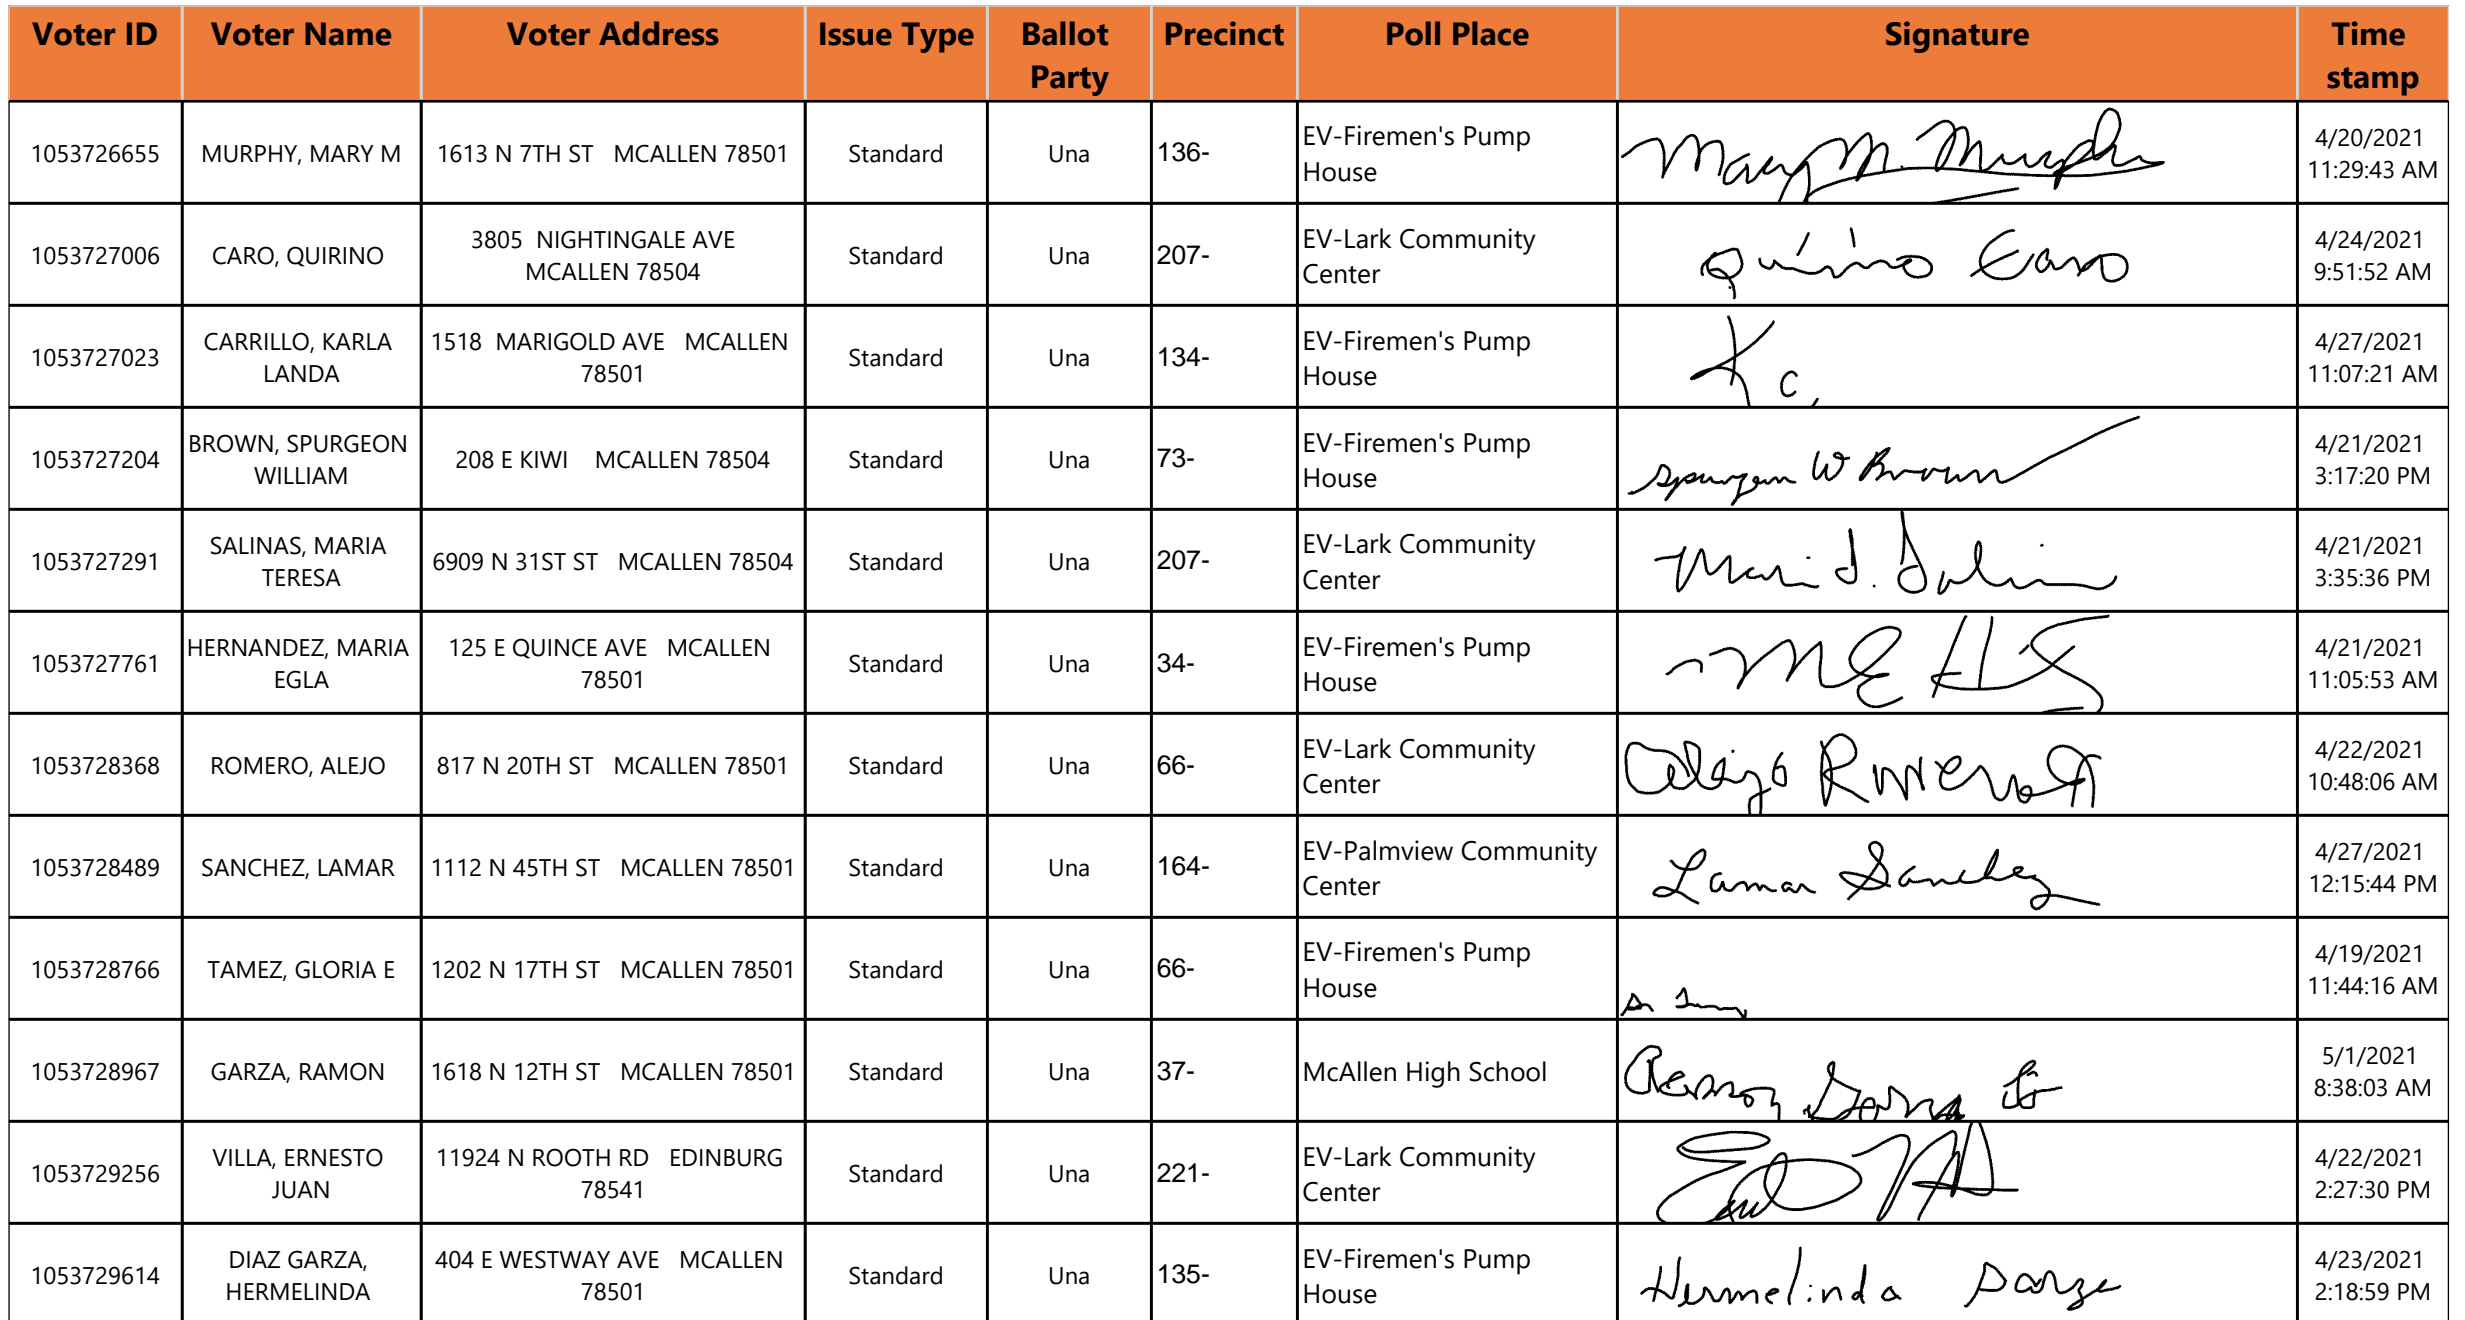 Voter ID Voter Name Voter Address Issue Type Ballot Party Precinct Poll Place Signature Time stamp
1053726655 MURPHY, MARY M 1613 N 7TH ST MCALLEN 78501 Standard Una 136- EV-Firemen's Pump House Mary M. Murphy 4/20/2021 11:29:43 AM
1053727006 CARO, QUIRINO 3805 NIGHTINGALE AVE MCALLEN 78504 Standard Una 207- EV-Lark Community Center Quirino Caro 4/24/2021 9:51:52 AM
1053727023 CARRILLO, KARLA LANDA 1518 MARIGOLD AVE MCALLEN 78501 Standard Una 134- EV-Firemen's Pump House K C, 4/27/2021 11:07:21 AM
1053727204 BROWN, SPURGEON WILLIAM 208 E KIWI MCALLEN 78504 Standard Una 73- EV-Firemen's Pump House Spurgeon W Brown 4/21/2021 3:17:20 PM
1053727291 SALINAS, MARIA TERESA 6909 N 31ST ST MCALLEN 78504 Standard Una 207- EV-Lark Community Center Maria T. Salinas 4/21/2021 3:35:36 PM
1053727761 HERNANDEZ, MARIA EGLA 125 E QUINCE AVE MCALLEN 78501 Standard Una 34- EV-Firemen's Pump House M E H 4/21/2021 11:05:53 AM
1053728368 ROMERO, ALEJO 817 N 20TH ST MCALLEN 78501 Standard Una 66- EV-Lark Community Center Alejo Romero 4/22/2021 10:48:06 AM
1053728489 SANCHEZ, LAMAR 1112 N 45TH ST MCALLEN 78501 Standard Una 164- EV-Palmview Community Center Lamar Sanchez 4/27/2021 12:15:44 PM
1053728766 TAMEZ, GLORIA E 1202 N 17TH ST MCALLEN 78501 Standard Una 66- EV-Firemen's Pump House 4/19/2021 11:44:16 AM
1053728967 GARZA, RAMON 1618 N 12TH ST MCALLEN 78501 Standard Una 37- McAllen High School Ramon Garza Jr 5/1/2021 8:38:03 AM
1053729256 VILLA, ERNESTO JUAN 11924 N ROOTH RD EDINBURG 78541 Standard Una 221- EV-Lark Community Center 4/22/2021 2:27:30 PM
1053729614 DIAZ GARZA, HERMELINDA 404 E WESTWAY AVE MCALLEN 78501 Standard Una 135- EV-Firemen's Pump House Hermelinda Garza 4/23/2021 2:18:59 PM